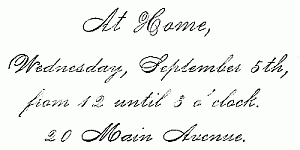 At Home,
Wednesday, September 5th,
from 12 until 3 o'clock.
20 Main Avenue.